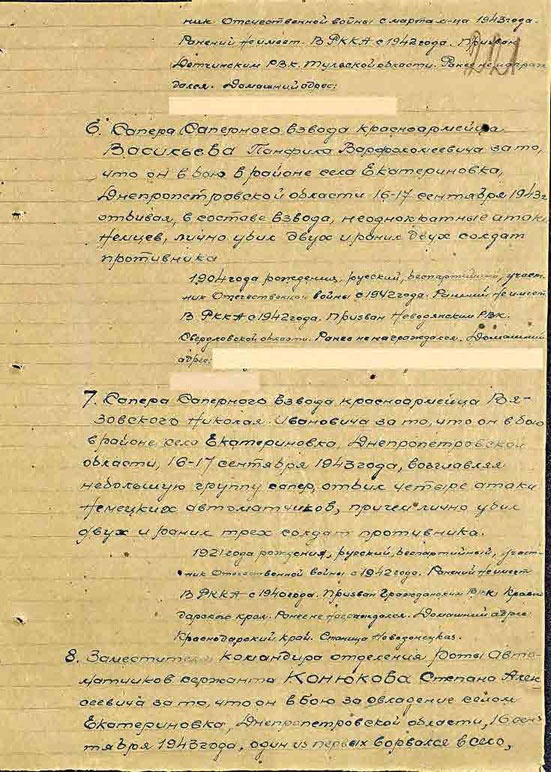 ник Отечественной войны с марта м-ца 1943 года.
Ранений не имеет. В РККА с 1942 года. Призван
РВК. Тульской области. Ранее не награж-
дался. Домашний адрес:
6. Сапера Саперного взвода красноармейца
Васильева Панфила Варфоломеевича за то,
что он в бою в районе села Екатериновка,
Днепропетровской области 16-17 сентября 1943 г
отбивал, в составе взвода, неоднократные атаки
немцев, лично убил двух и ранил двух солдат
противника
1904 года рождения, русский, беспартийный, участ-
ник Отечественной войны с 1942 года. Ранений не имеет
В РККА с 1942 года. Призван РВК.
Свердловской области. Ранее не награждался. Домашний
адрес:
7. Сапера Саперного взвода красноармейца Вя-
зовского Николая Ивановича за то, что он в бою
в районе села Екатериновка, Днепропетровской
области, 16-17 сентября 1943 года, возглавляя
небольшую группу сапер, отбил четыре атаки
немецких автоматчиков, причем лично убил
двух и ранил трех солдат противника.
1921 года рождения, русский, беспартийный, участ-
ник Отечественной войны с 1942 года. Ранений не имеет
В РККА с 1940 года. Призван Гражданским РВК Красно-
дарского края. Ранее не награждался. Домашний адрес:
Краснодарский край. Станица Новодонецкая.
8. Заместителя командира отделения роты авто-
матчиков сержанта Конюкова Степана Алек-
сеевича за то, что он в бою за овладение селом
Екатериновка, Днепропетровской области, 16 сен-
тября 1943 года, один из первых ворвался в село,